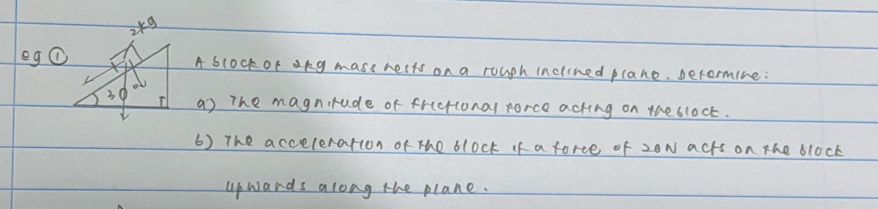 2kg
eg ① A block of 2kg mass rests on a rough inclined plane. Determine:
30°
a) The magnitude of frictional force acting on the block.
b) The acceleration of the block if a force of 20N acts on the block
upwards along the plane.